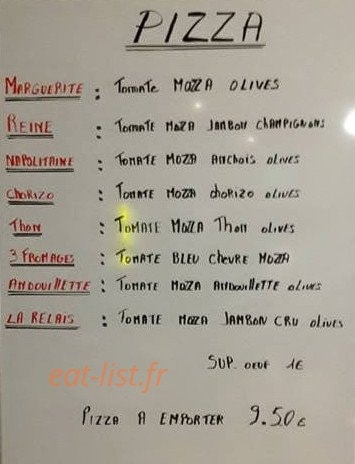 PIZZA
MARGUERITE : Tomate MOZZA OLIVES
REINE : TOMATE MOZA JAMBON CHAMPIGNONS
NAPOLITAINE : TOMATE MOZZA Anchois olives
CHORIZO : TOMATE MOZZA chorizo olives
Thon : TOMATE MOZZA Thon olives
3 FROMAGES : TOMATE BLEU Chevre MOZZA
ANDOUILLETTE : TOMATE MOZA ANDOUILLETTE olives
LA RELAIS : TOMATE MOZA JAMBON CRU olives
SUP. oeuf 1€
eat-list.fr
PIZZA A EMPORTER 9.50€